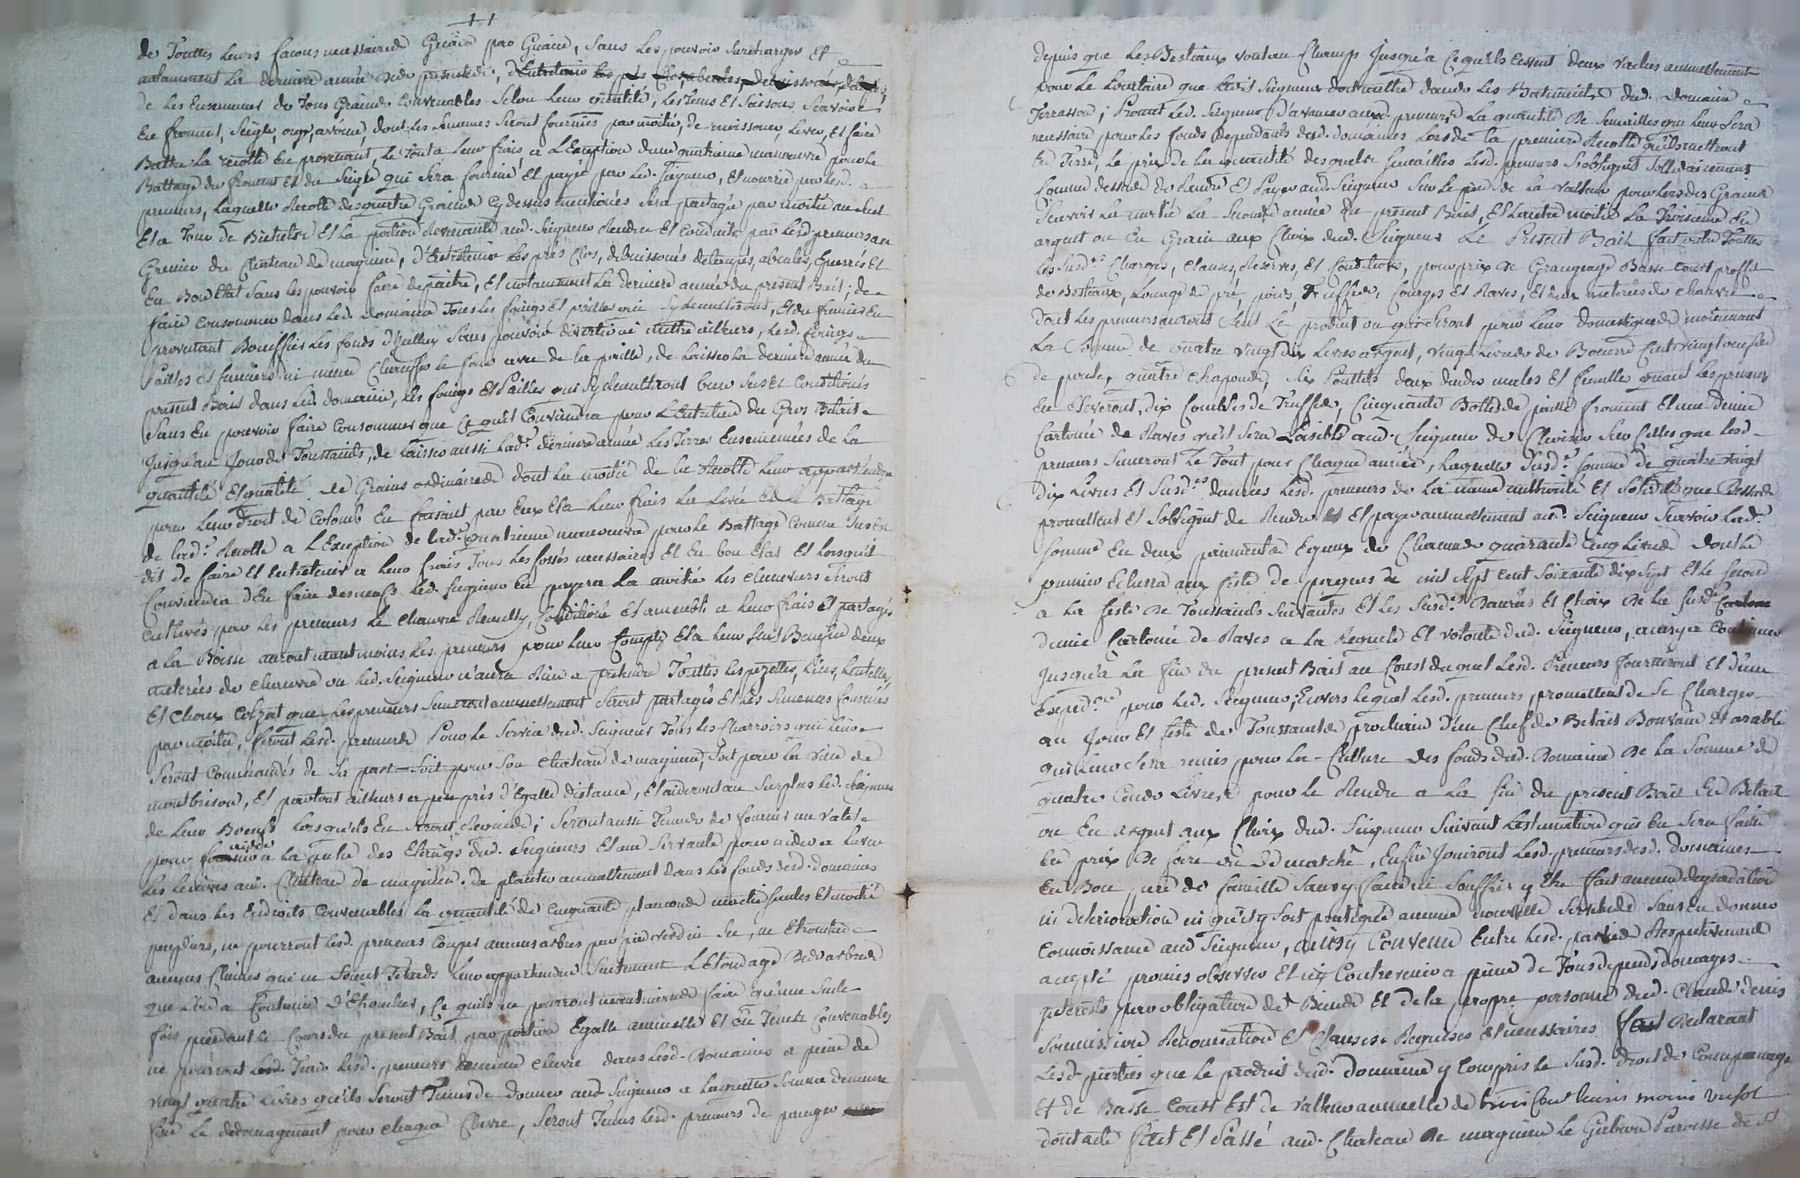 de Touttes Leurs façons necessaires Gueret par Gueret, Sans Les pouvoir Surcharger Et
notamment La derniere année dudt present Bail, d'Entretenir les prés Clos,
de Les Ensemencer de Tous Grains Convenables Selon Leur quantité, Les Tems et Saisons Scavoir
En froment, Seigle, orge, avoine, dont Les semences Seront fournies par moitié, de moissonner, Lever, Et faire
Battre La recolte En provenant, Le Tout a Leur frais a L'Exception d'une quatrieme manoeuvre pour Le
Battage du froment Et du Seigle qui Sera fournie Et payée par Led. Seigneur, Et nourrie par lesd.
preneurs, Laquelle Recolte desquatre Grains Cy dessus mentionés Sera partagée par moitié
Et a Tour de Bichet Et La portion Revenante aud. Seigneur Rendue Et Conduite par Lesd. preneurs au
Grenier du Chateau de magnieu, d'Entretenir Les prés Clos, debuissonés
En Bon Etat Sans Les pouvoir faire depaitre, Et notamment La derniere année du present Bail; de
faire Consommer dans Led. domaine Tous Les foings Et pailles qui Sy Recueilliront, Et du fumier En
provenant Bonniffier Les fonds d'Icelluy Sans pouvoir divertir ni mettre ailleurs, Lesd. foings
Pailles et fumiers ni meme Chauffer Le four avec de la paille, de Laisser La derniere année du
present Bail dans Led. domaine, Les foings Et Pailles qui Sy Recueilliront bien Secs Et Conditionés
Sans En pouvoir faire Consommer que Ce qu'il Conviendra pour L'Entretien du Gros Betail
Jusqu'au Jour de Toussaints, de Laisser aussi Lad. derniere année Les Terres Ensemencées de La
quantité Et qualité de Grains ordinaires dont La moitié de la Recolte Leur appartiendra
pour Leur droit de Colons En faisant par Eux Et a Leur frais La Levée Et Le Battage
de Lad. Recolte a L'Exception de Lad. quatrieme manoeuvre pour Le Battage Comme Jus Est
dit de faire Et Entretenir a Leur frais Tous Les fossés necessaires Et En bon Etat Et Lorsqu'il
Conviendra d'En faire des neufs Led. Seigneur En payera La moitié Les chenevirs Seront
Cultivés par Les preneurs Le Chanvre Recueilly, Conditioné Et amenbt a Leur frais Et partagés
a la Boisse auront neantmoins Les preneurs pour Leur Compte Et a Leur Seul Benefice deux
meterées de Chanvre ou Led. Seigneur n'aura Rien a pretendre Touttes Les pezettes, Lins, Lentilles,
Et Choux Colzat que Les preneurs Semeront annuellement Seront partagés Et Les Semences fournies
par moitié, feront Lesd. preneurs Pour Le Service dud. Seigneur Tous Les Charrois qui Leur
Seront Commandés de Sa part Soit pour Son Chateau de magnieu, Soit pour La Ville de
montbrison, Et partout ailleurs a peu près d'Egalle distance, Et aideront au Surplus Led.
de Leur Boeufs Lors qu'ils En Seront Requis; Seront aussi Tenus de fournir un Valet
pour aider a La peche des Etangs dud. Seigneur Et une Servante pour aider a Laver
Les Lessives aud. Chateau de magnieu. de planter annuellement dans Les fonds desd. domaines
Et dans Les Endroits Convenables La quantité de Cinquante plançons moitié Saules Et moitié
peupliers, ne pourront Lesd. preneurs Couper aucuns arbres par pied verd ni Sec, ne Etronter
aucuns Chaines qui ne Soient Tetards Leur appartiendra Seulement L'Etondage des arbres
que L'on a Coutume d'Ebrancher, Ce qu'ils ne pourront neantmoins faire qu'une Seule
fois pendant Le Cours du present Bail par portion Egalle annuelle Et En Tems Convenables
ne pourront Lesd. preneurs Tenir aucune Chevre dans Lesd. Domaines a peine de
vingt quatre Livres qu'ils Seront Tenus de donner aud. Seigneur a Laquelle Somme demeure
fixé Le dedomagement pour Chaque Chevre, Seront Tenus Lesd. preneurs de partager
depuis que Les Bestiaux vont au Champs Jusqu'a Ce qu'ils
pour Le Locataire que Led. Seigneur domicillie dans Les Batiments dud. domaine
Terrasson; Promet Led. Seigneur d'avancer aux preneurs La quantité De Semailles qui Leur Sera
necessaire pour Les fonds dependants desd. domaines Lors de La premiere Recolte qu'ils mettront
En Terre, Le prix de La quantité desquelles Semailles Lesd. preneurs S'obligent Sollidairement
Comme dessus de Rendre Et Payer aud. Seigneur Sur Le pied de La valleur pour Lors des Grains
Scavoir La moitié La Seconde année du present Bail, Et L'autre moitié La Troisieme En
argent ou En Grain aux Choix dud. Seigneur Le Present Bail fait outre Touttes
Les Susd.es Charges, Clauses, Reserves, Et Conditions, pour prix de Grangeage Basse Court proffit
de Bestiaux, Louage de pré, pois, Truffes, Courges Et Raves, Et deux meterées de Chanvre
dont Les preneurs auront Seul Le produit ou qui seront pour Leur domestiques moienant
La Somme de quatre vingt dix Livres argent, vingt Livres de Beurre Cent vingt oeufs
de poule, quatre chapons, Six Poullets deux dindes males Et femelle quand Les preneurs
En Eleveront, dix Combles de Truffes, Cinquante Bottes de paille froment Et une demie
Cartonée de Raves qu'il Sera Loisible aud. Seigneur de Choisir Sur Celles que Lesd.
preneurs Semeront Le Tout pour Chaque année, Laquelle Susd.e Somme de quatre vingt
dix Livres Et Susd.es danrées Lesd. preneurs de La meme authorité Et Solidité que Dessus
promettent Et S'obligent de Rendre Et payer annuellement aud. Seigneur Scavoir Lad.
Somme En deux paiements Egaux de Chacun quarante Cinq Livres dont Le
premier Echerra aux feste de paques de mil Sept cent Soixante dix Sept Et Le Second
a La feste De Toussaints Suivantes Et Les Susd.es Danrées Et Choix De La Susd.
demie Cartonée de Raves a La Requete Et volonté dud. Seigneur, ainsy a Continuer
Jusqu'a La fin du present Bail au Cours duquel Lesd. Preneurs fourniront Et d'une
Exped.on pour Led. Seigneur; Envers Lequel Lesd. preneurs promettent de Se Charger
au Jour Et feste de Toussaints prochain d'un Chef de Betail Bouvain Et arable
qui Leur Sera remis pour La Culture des fonds dud. Domaine De La Somme de
quatre Cents Livres pour Le Rendre a La fin du present Bail En Betail
ou En argent aux Choix dud. Seigneur Suivant L'estimation qui En Sera faite
En prix De foire ou De marché, Enfin Jouiront Lesd. preneurs desd. domaines
En Bon pere de famille Sans y faire ni Souffrir y Etre fait aucune degradation
ni deterioration ni qu'il y Soit pratiquée aucune nouvelle Servitude Sans En donner
Connoissance aud. Seigneur, ainsy Convenu Entre Lesd. parties Respectivement
accepté promis observer Et n'y Contrevenir a peine de Tous depends domages
interests par obligation de Biens Et de La propre personne dud. Claude denis
Soumission Renonciation Et Clauses Requises Et necessaires Declarant
Lesd. parties que Le produit dud. domaine y Compris Le Susd. droit de Compenage
Et de Basse Court Est de valleur annuelle de trois Cent Livres moins un sol
dont acte fait Et Passé aud. Chateau de magnieu Le Gabion Paroisse de St